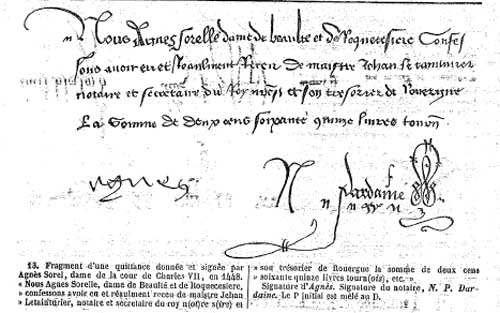 Nous Agnes sorelle dame de beaulte et de Roquecesiere Confes
sons avoir eu et Realment Receu de maistre Jehan le
notaire et secretaire du Roy nosre et son tresorier de Rouergue
La somme de deux cens soixante quinze livres tourn
Agnes
N Pardaine
13. Fragment d'une quittance donnée et signée par
Agnès Sorel, dame de la cour de Charles VII, en 1448.
« Nous Agnes Sorelle, dame de Beaulté et de Roquecesiere,
« confessons avoir eu et réaulment receu de maistre Jehan
« Letainturier, notaire et secrétaire du roy n(ot)re s(ire) et
» son trésorier de Rouergue la somme de deux cens
» soixante quinze livres tourn(ois), etc. »
Signature d'Agnès. Signature du notaire, N. P. Dar-
daine. Le P initial est mêlé au D.